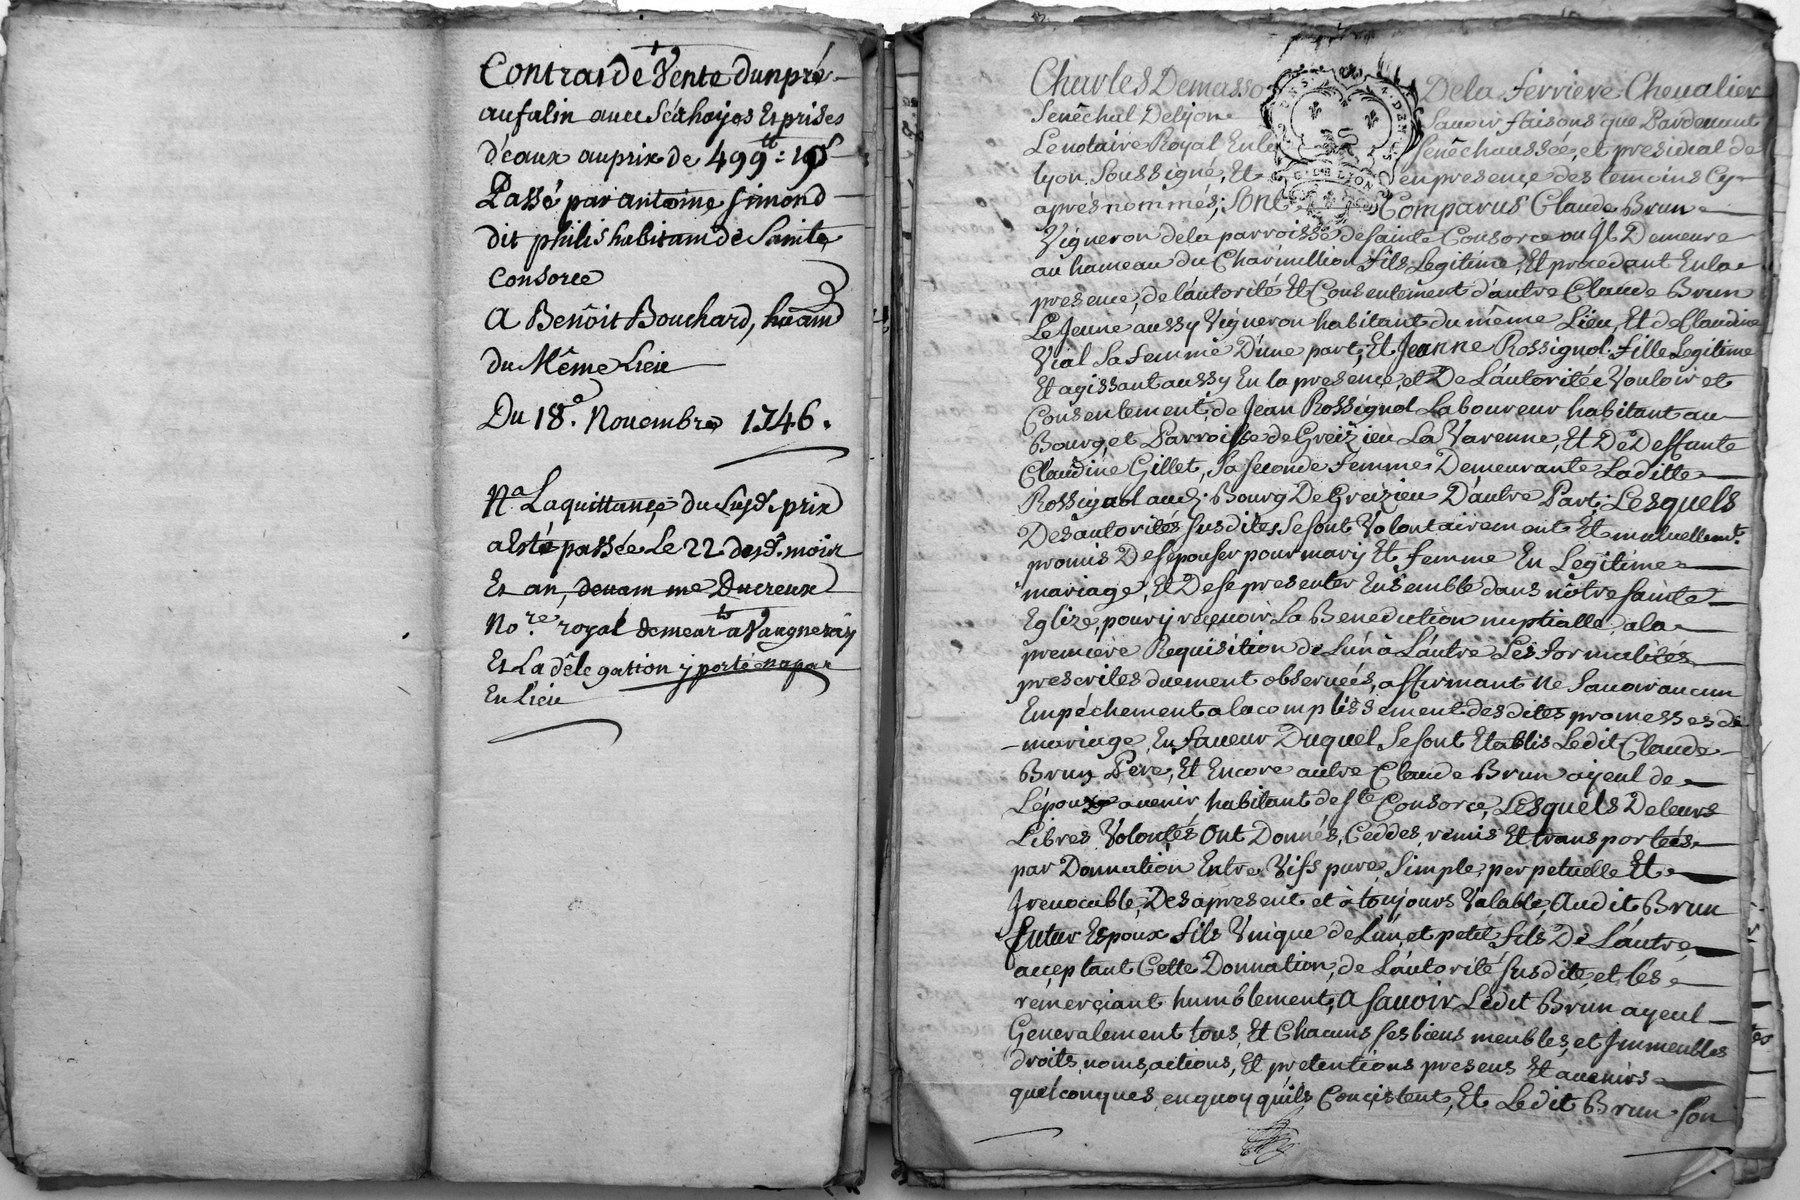 Contrat de Vente dun pré
au falin avec Ses hayes Et prises
d'eaux au prix de 499 lt : 19 s
Passé par antoine Simond
dit philis habitant de Sainte
Consorce
A Benôit Bouchard, hâant
du Même Lieu
Du 18e. Novembre 1746.
Na. La quittance du Susd. prix
a Esté passée Le 22 desd. mois
Et an, devant me Ducreux
Nore. royal demeurt a Vaugneray
Et La délegation y porté na pas
Eu Lieu
Charles Demasso De la ferriere Chevalier
Senêchal De lyon Savoir faisons que Pardevant
Le notaire Royal En la Senêchaussée, et presidial de
lyon Soussigné, Et en presence des temoins Cy
aprés nommés; Sont Comparus Claude Brun
Vigneron de la parroisse de Sainte Consorce ou Jl Demeure
au hameau du Charmillion fils Legitime, Et procedant En la
presence, de l'autorité Et Consentement d'autre Claude Brun
Le Jeune aussy Vigneron habitant du même Lieu, Et de Claudine
Vial Sa femme D'une part, Et Jeanne Rossignol fille Legitime
Et agissant aussy En la presence, et De L'autorité Vouloir et
Consentement, de Jean Rossignol Laboureur habitant au
Bourg, et Parroisse de Greizieu La Varenne, Et De Deffunte
Claudine Gillet, Sa seconde femme Demeurante Laditte
Rossignol aud. Bourg De Greizieu D'autre Part; Lesquels
Des autorités Susdites Se sont Volontairement Et mutuellemt.
promis De S'épouser pour mary Et femme En Legitime
mariage, Et De se presenter Ensemble dans nôtre Sainte
Eglize, pour y reçevoir La Benediction nuptialle, a la
premiere Requisition de L'un à L'autre Les formalités
prescrites duement observeés, affirmant Ne Savoir aucun
Empéchement a lacomplissement desdites promesses de
mariage, En faveur Duquel Se sont Etablis Ledit Claude
Brun Pere, Et Encore autre Claude Brun ayeul de
L'époux avenir habitant de Ste Consorce, Lesquels De leurs
Libres Volontés Ont Donnés, Ceddes, remis Et transportées
par Donnation Entre Vifs pure, Simple, perpetuelle Et
Jrrevocable, Des apresent et à toujours Valable, Audit Brun
futur Epoux fils Unique de L'un, et petit fils De L'autre
acçeptant Cette Donnation, de L'autorité Susdite, et les
remerçiant humblement, A Savoir Ledit Brun ayeul
Generalement tous, Et Chacuns ses biens meubles, et Jmmeubles
droits, noms, actions, Et pretentions presens Et avenirs
quelconques, en quoy qu'ils Conçistent, Et Ledit Brun Son